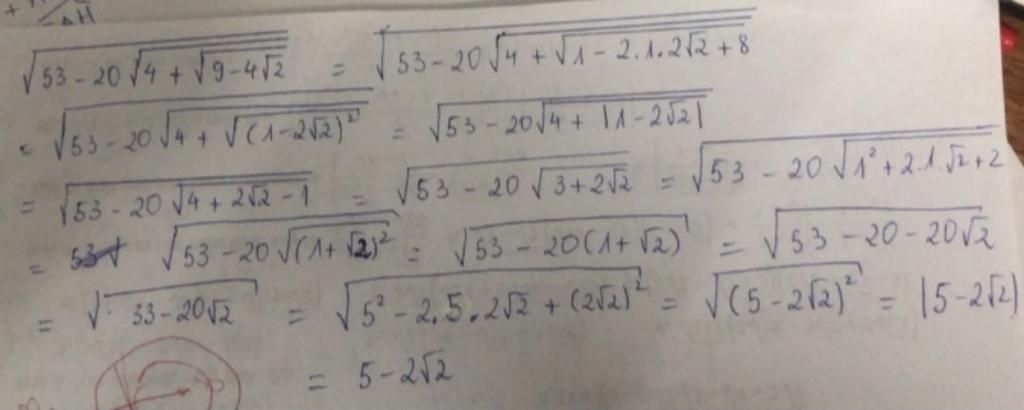 + ΔH
√(53 - 20√(4 + √(9 - 4√2))) = √(53 - 20√(4 + √(1 - 2.1.2√2 + 8)))
= √(53 - 20√(4 + √((1 - 2√2)²))) = √(53 - 20√(4 + |1 - 2√2|))
= √(53 - 20√(4 + 2√2 - 1)) = √(53 - 20√(3 + 2√2)) = √(53 - 20√(1² + 2.1.√2 + 2))
= √(53 - 20√((1 + √2)²)) = √(53 - 20(1 + √2)) = √(53 - 20 - 20√2)
= √(33 - 20√2) = √(5² - 2.5.2√2 + (2√2)²) = √((5 - 2√2)²) = |5 - 2√2|
= 5 - 2√2